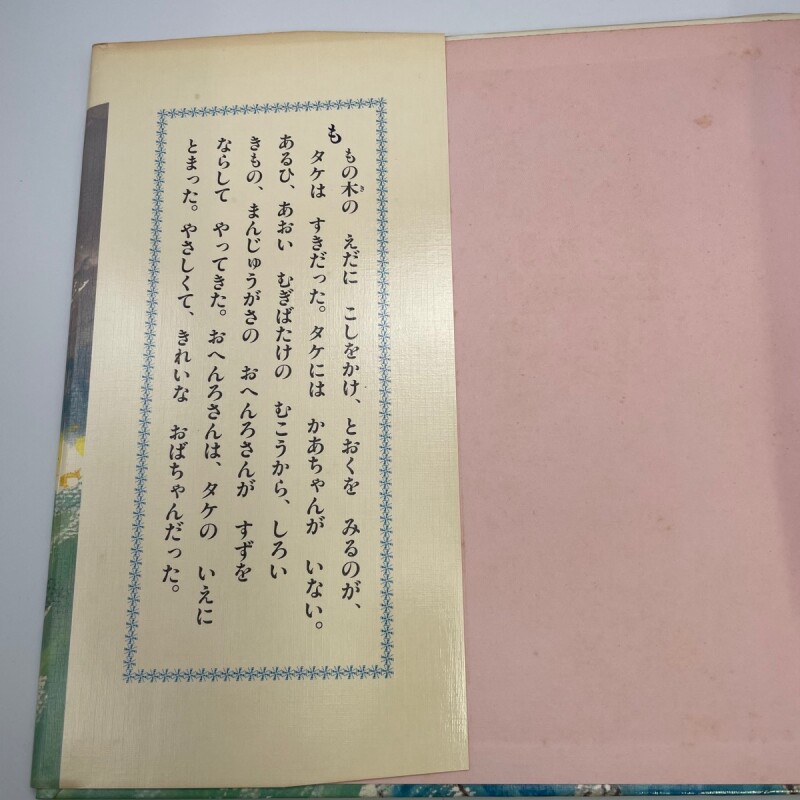 もの木の　えだに　こしをかけ、とおくを　みるのが、
タケは　すきだった。タケには　かあちゃんが　いない。
あるひ、あおい　むぎばたけの　むこうから、しろい
きもの、まんじゅうがさの　おへんろさんが　すずを
ならして　やってきた。おへんろさんは、タケの　いえに
とまった。やさしくて、きれいな　おばちゃんだった。